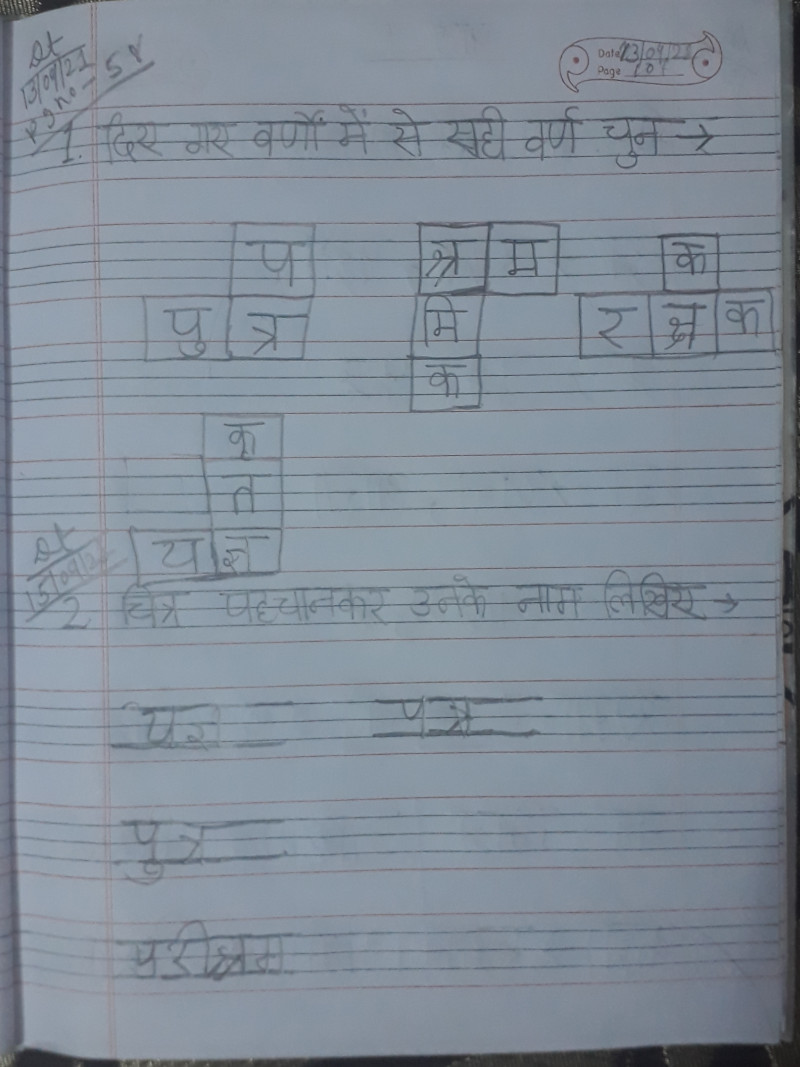 Dt
13/09/21
Pg no - 58
Date 13/09/21
Page 101
1. दिए गए वर्णों में से सही वर्ण चुन →
प श्र म क
पु त्र मि र क्ष क
क
कृ
त
य ज्ञ
Dt
15/09/2
2 चित्र पहचानकर उनके नाम लिखिए →
पत्र
पुत्र